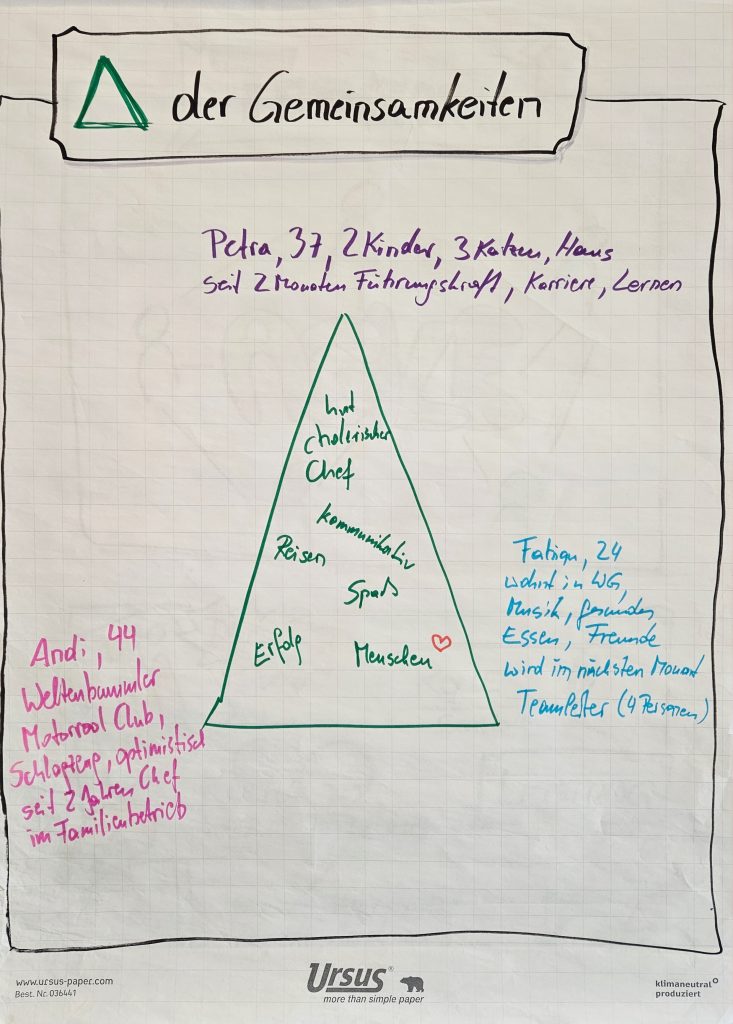 der Gemeinsamkeiten
Petra, 37, 2 Kinder, 3 Katzen, Haus
seit 2 Monaten Führungskraft, Karriere, Lernen
hat
cholerischer
Chef
kommunikativ
Reisen
Spaß
Erfolg
Menschen
Fabian, 24
wohnt in WG,
Musik, gesundes
Essen, Freunde
wird im nächsten Monat
Teamleiter (4 Personen)
Andi, 44
Weltenbummler
Motorrad Club,
Schlagzeug, optimistisch
seit 2 Jahren Chef
im Familienbetrieb
www.ursus-paper.com
Best. Nr. 036441
Ursus®
more than simple paper
klimaneutral
produziert